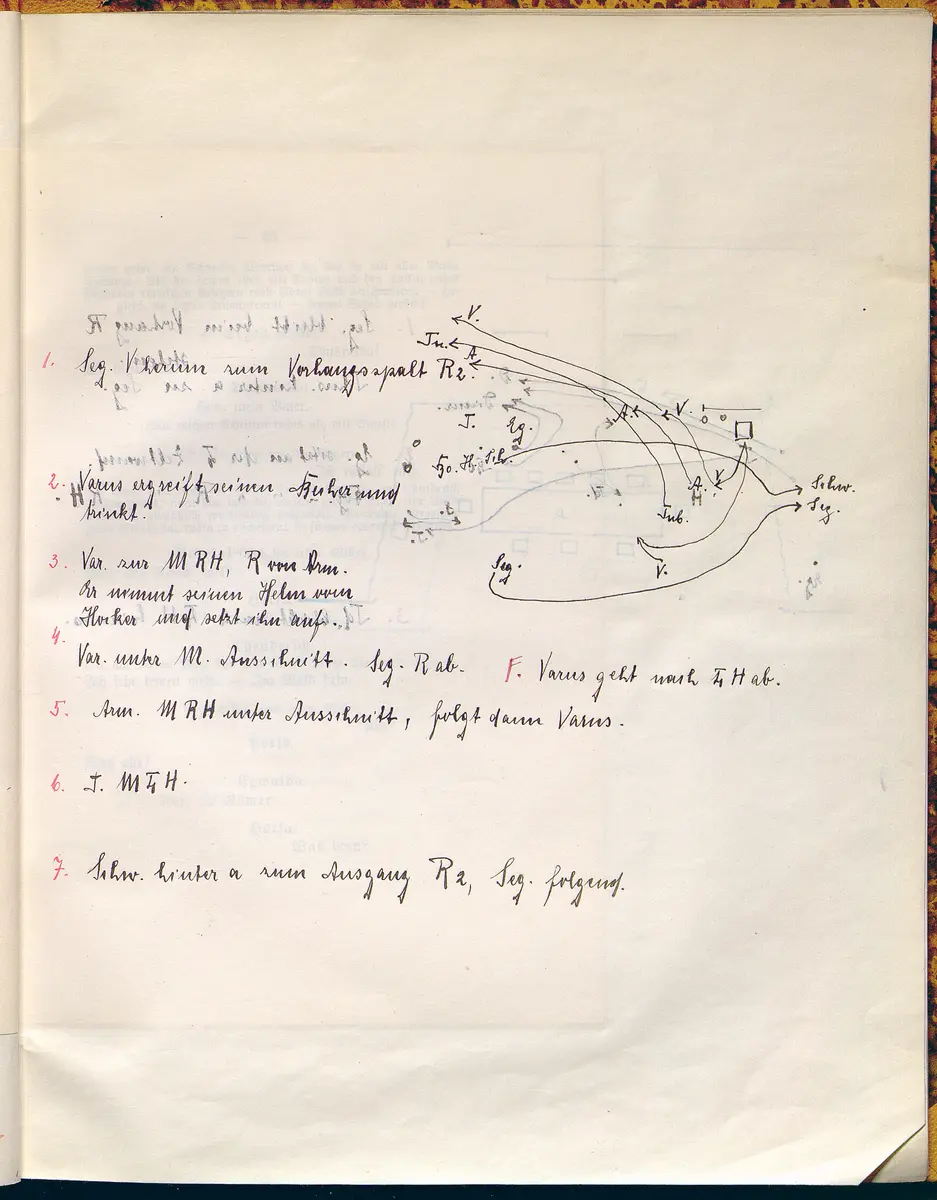 V.
In.
A
1. Seg. V herum zum Vorhangsspalt R2.
J. Eg.
A. V.
Ho. H. Sch.
2. Varus ergreift seinen Becher und
trinkt.
A. V
H
Schw.
Seg.
Tub.
Seg.
V.
3. Var. zur M RH, R von Arm.
Er nimmt seinen Helm vom
Hocker und setzt ihn auf.
4. Var. unter M. Ausschnitt. Seg. R ab. F. Varus geht nach L H ab.
5. Arm. M RH unter Ausschnitt, folgt dann Varus.
6. J. M L H.
7. Schw. hinter a zum Ausgang R2, Seg. folgend.